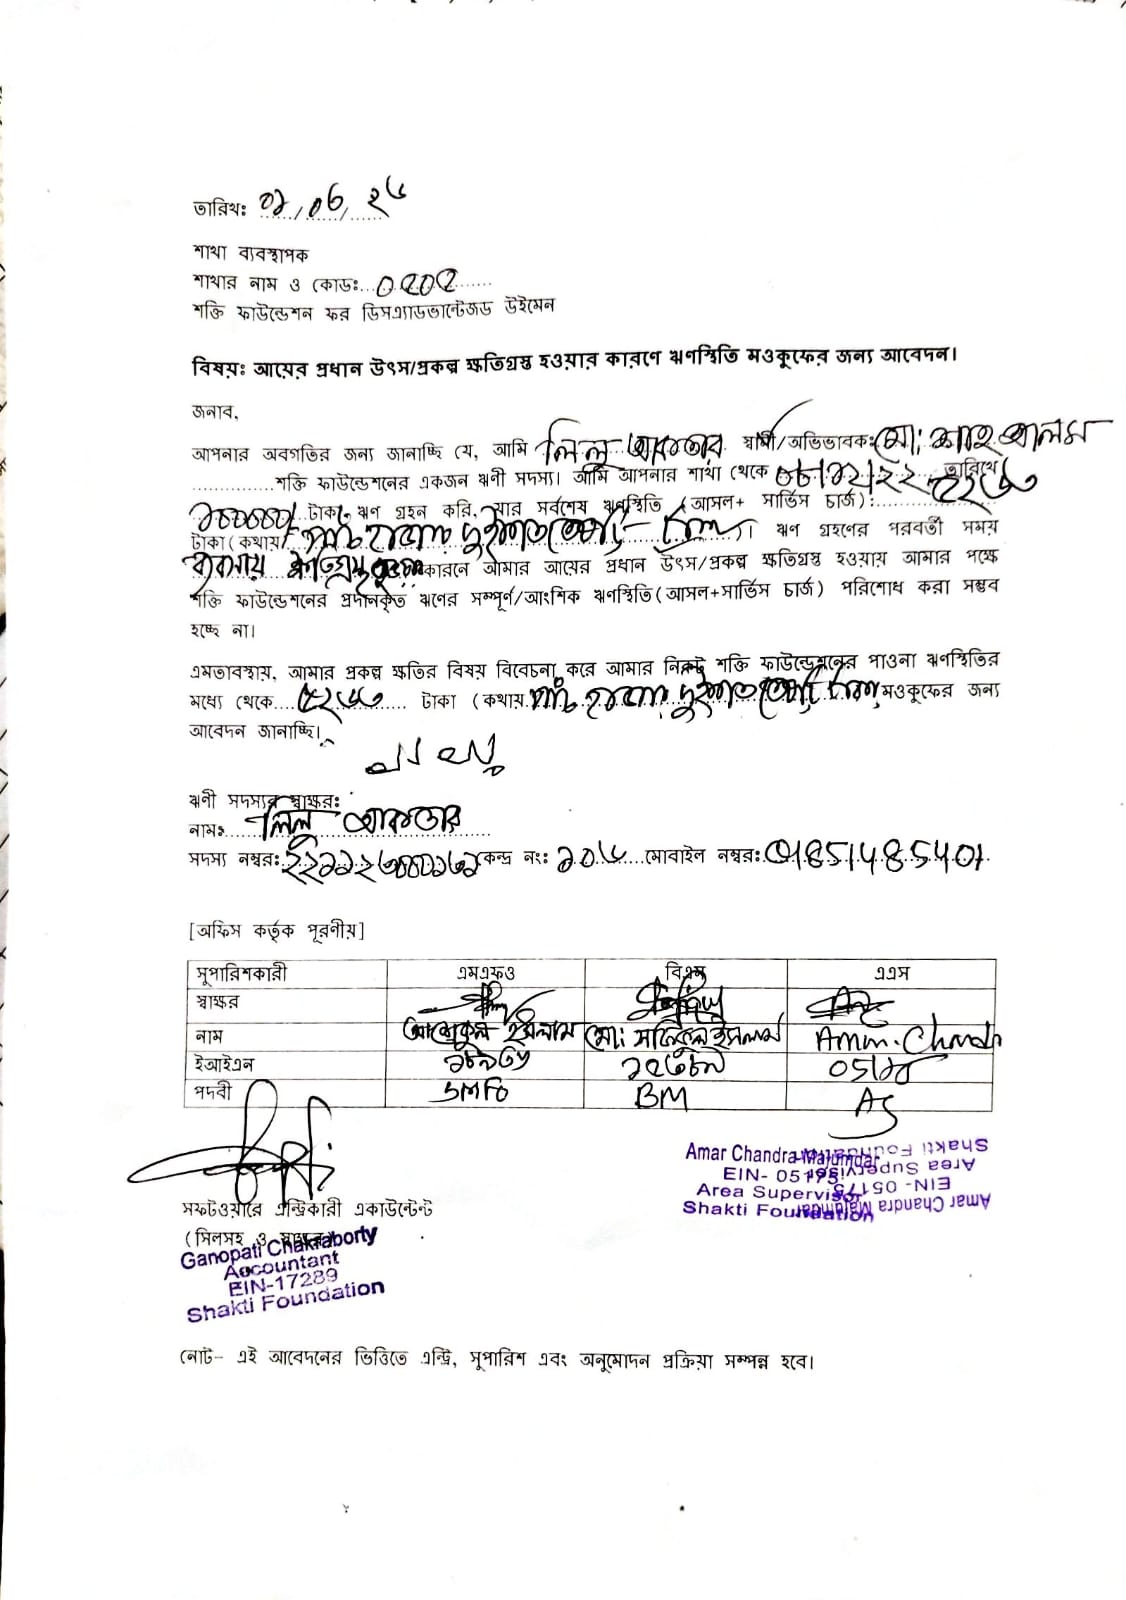 তারিখঃ ০১/০৬/২৫
শাখা ব্যবস্থাপক
শাখার নাম ও কোডঃ...০২০২.......
শক্তি ফাউন্ডেশন ফর ডিসএ্যাডভান্টেজড উইমেন
বিষয়ঃ আয়ের প্রধান উৎস/প্রকল্প ক্ষতিগ্রস্ত হওয়ার কারণে ঋণস্থিতি মওকুফের জন্য আবেদন।
জনাব,
আপনার অবগতির জন্য জানাচ্ছি যে, আমি লিলু আকতার স্বামী/অভিভাবকঃ মোঃ শাহ আলম
..............শক্তি ফাউন্ডেশনের একজন ঋণী সদস্য। আমি আপনার শাখা থেকে তারিখে
টাকা ঋণ গ্রহন করি, যার সর্বশেষ ঋণস্থিতি (আসল+ সার্ভিস চার্জ):
টাকা(কথায় পাঁচ হাজার দুইশত )। ঋণ গ্রহণের পরবর্তী সময়
ব্যবসায় ক্ষতিগ্রস্থ কারনে আমার আয়ের প্রধান উৎস/প্রকল্প ক্ষতিগ্রস্ত হওয়ায় আমার পক্ষে
শক্তি ফাউন্ডেশনের প্রদানকৃত ঋণের সম্পূর্ণ/আংশিক ঋণস্থিতি(আসল+সার্ভিস চার্জ) পরিশোধ করা সম্ভব
হচ্ছে না।
এমতাবস্থায়, আমার প্রকল্প ক্ষতির বিষয় বিবেচনা করে আমার নিকট শক্তি ফাউন্ডেশনের পাওনা ঋণস্থিতির
মধ্যে থেকে.... টাকা (কথায় পাঁচ হাজার দুইশত মওকুফের জন্য
আবেদন জানাচ্ছি।
ঋণী সদস্যর স্বাক্ষরঃ
নামঃ লিলু আকতার
সদস্য নম্বরঃ কেন্দ্র নং: ১০৫ মোবাইল নম্বরঃ 01851485401
[অফিস কর্তৃক পূরণীয়]
সুপারিশকারী এমএফও বিএম এএস
স্বাক্ষর
নাম ইসলাম মোঃ ইসলাম
ইআইএন
পদবী SMFO BM AS
Amar Chandra Majumdar
EIN- 05175
Area Supervisor
Shakti Foundation
Amar Chandra Majumdar
EIN- 05175
Area Supervisor
Shakti Foundation
সফটওয়ারে এন্ট্রিকারী একাউন্টেন্ট
(সিলসহ ও
Ganopati Chakraborty
Accountant
EIN-17289
Shakti Foundation
নোট- এই আবেদনের ভিত্তিতে এন্ট্রি, সুপারিশ এবং অনুমোদন প্রক্রিয়া সম্পন্ন হবে।